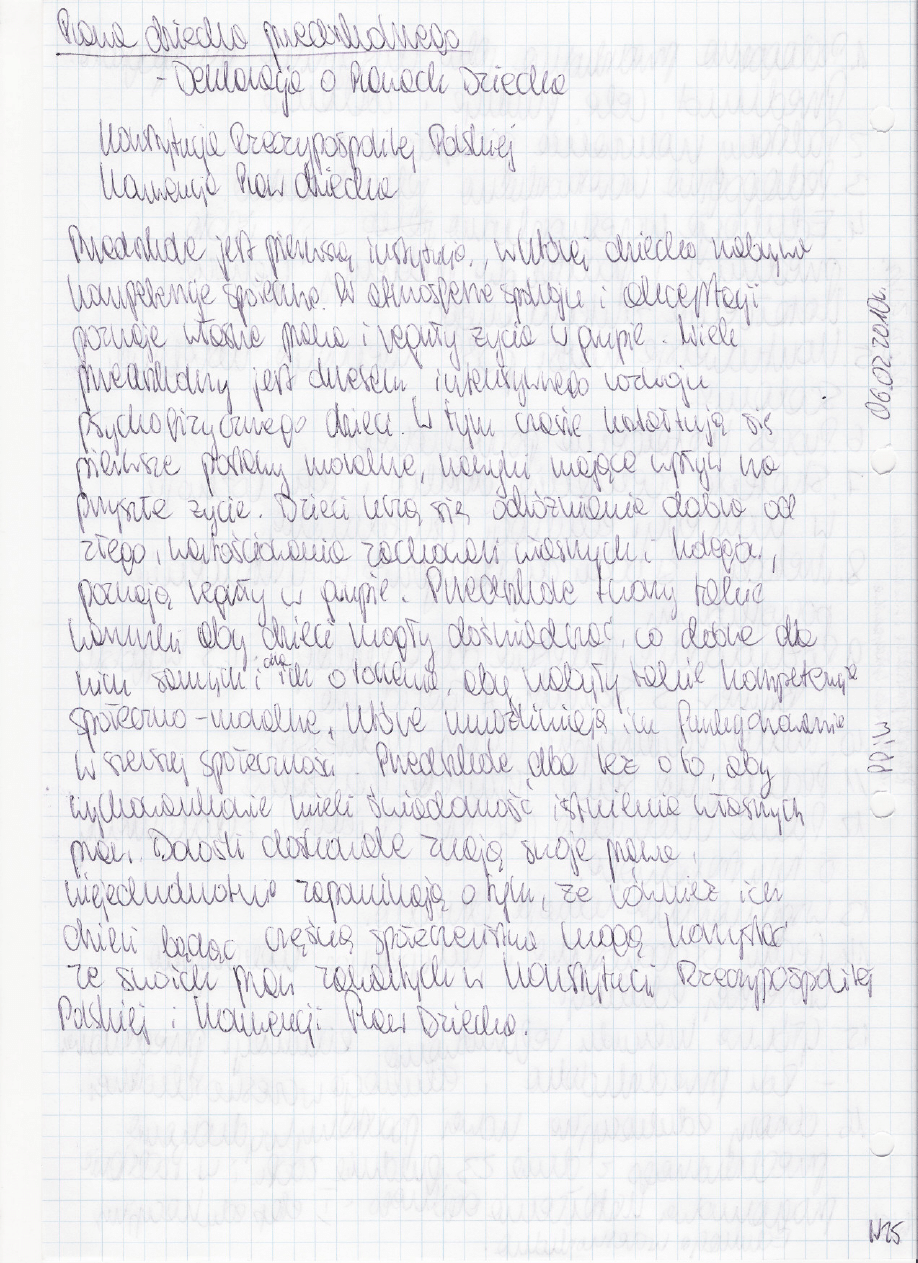 Prawa dziecka przedszkolnego
- Deklaracja o Prawach Dziecka
Konstytucja Rzeczypospolitej Polskiej
Konwencja Praw dziecka
Przedszkole jest pierwszą instytucją, w której dziecko nabywa
kompetencje społeczne. W atmosferze spokoju i akceptacji
poznaje własne prawa i reguły życia w grupie. Wiek
przedszkolny jest okresem intensywnego rozwoju
psychofizycznego dzieci. W tym czasie kształtują się
pierwsze postawy moralne, nawyki mające wpływ na
przyszłe życie. Dzieci uczą się odróżniania dobra od
złego, wartościowania zachowań własnych i kolegów,
poznają reguły w grupie. Przedszkole tworzy takie
warunki aby dzieci mogły doświadczać, co dobre dla
nich samych i dla ich otoczenia, aby nabyły takie kompetencje
społeczno-moralne, które umożliwiają im funkcjonowanie
w szerszej społeczności. Przedszkole dba też o to, aby
wychowankowie mieli świadomość istnienia własnych
praw. Dorośli doskonale znają swoje prawa,
niejednokrotnie zapominają o tym, że również ich
dzieci będąc częścią społeczeństwa mogą korzystać
ze swoich praw zawartych w Konstytucji Rzeczypospolitej
Polskiej i Konwencji Praw Dziecka.
06.02.2010r.
PPiW
W25